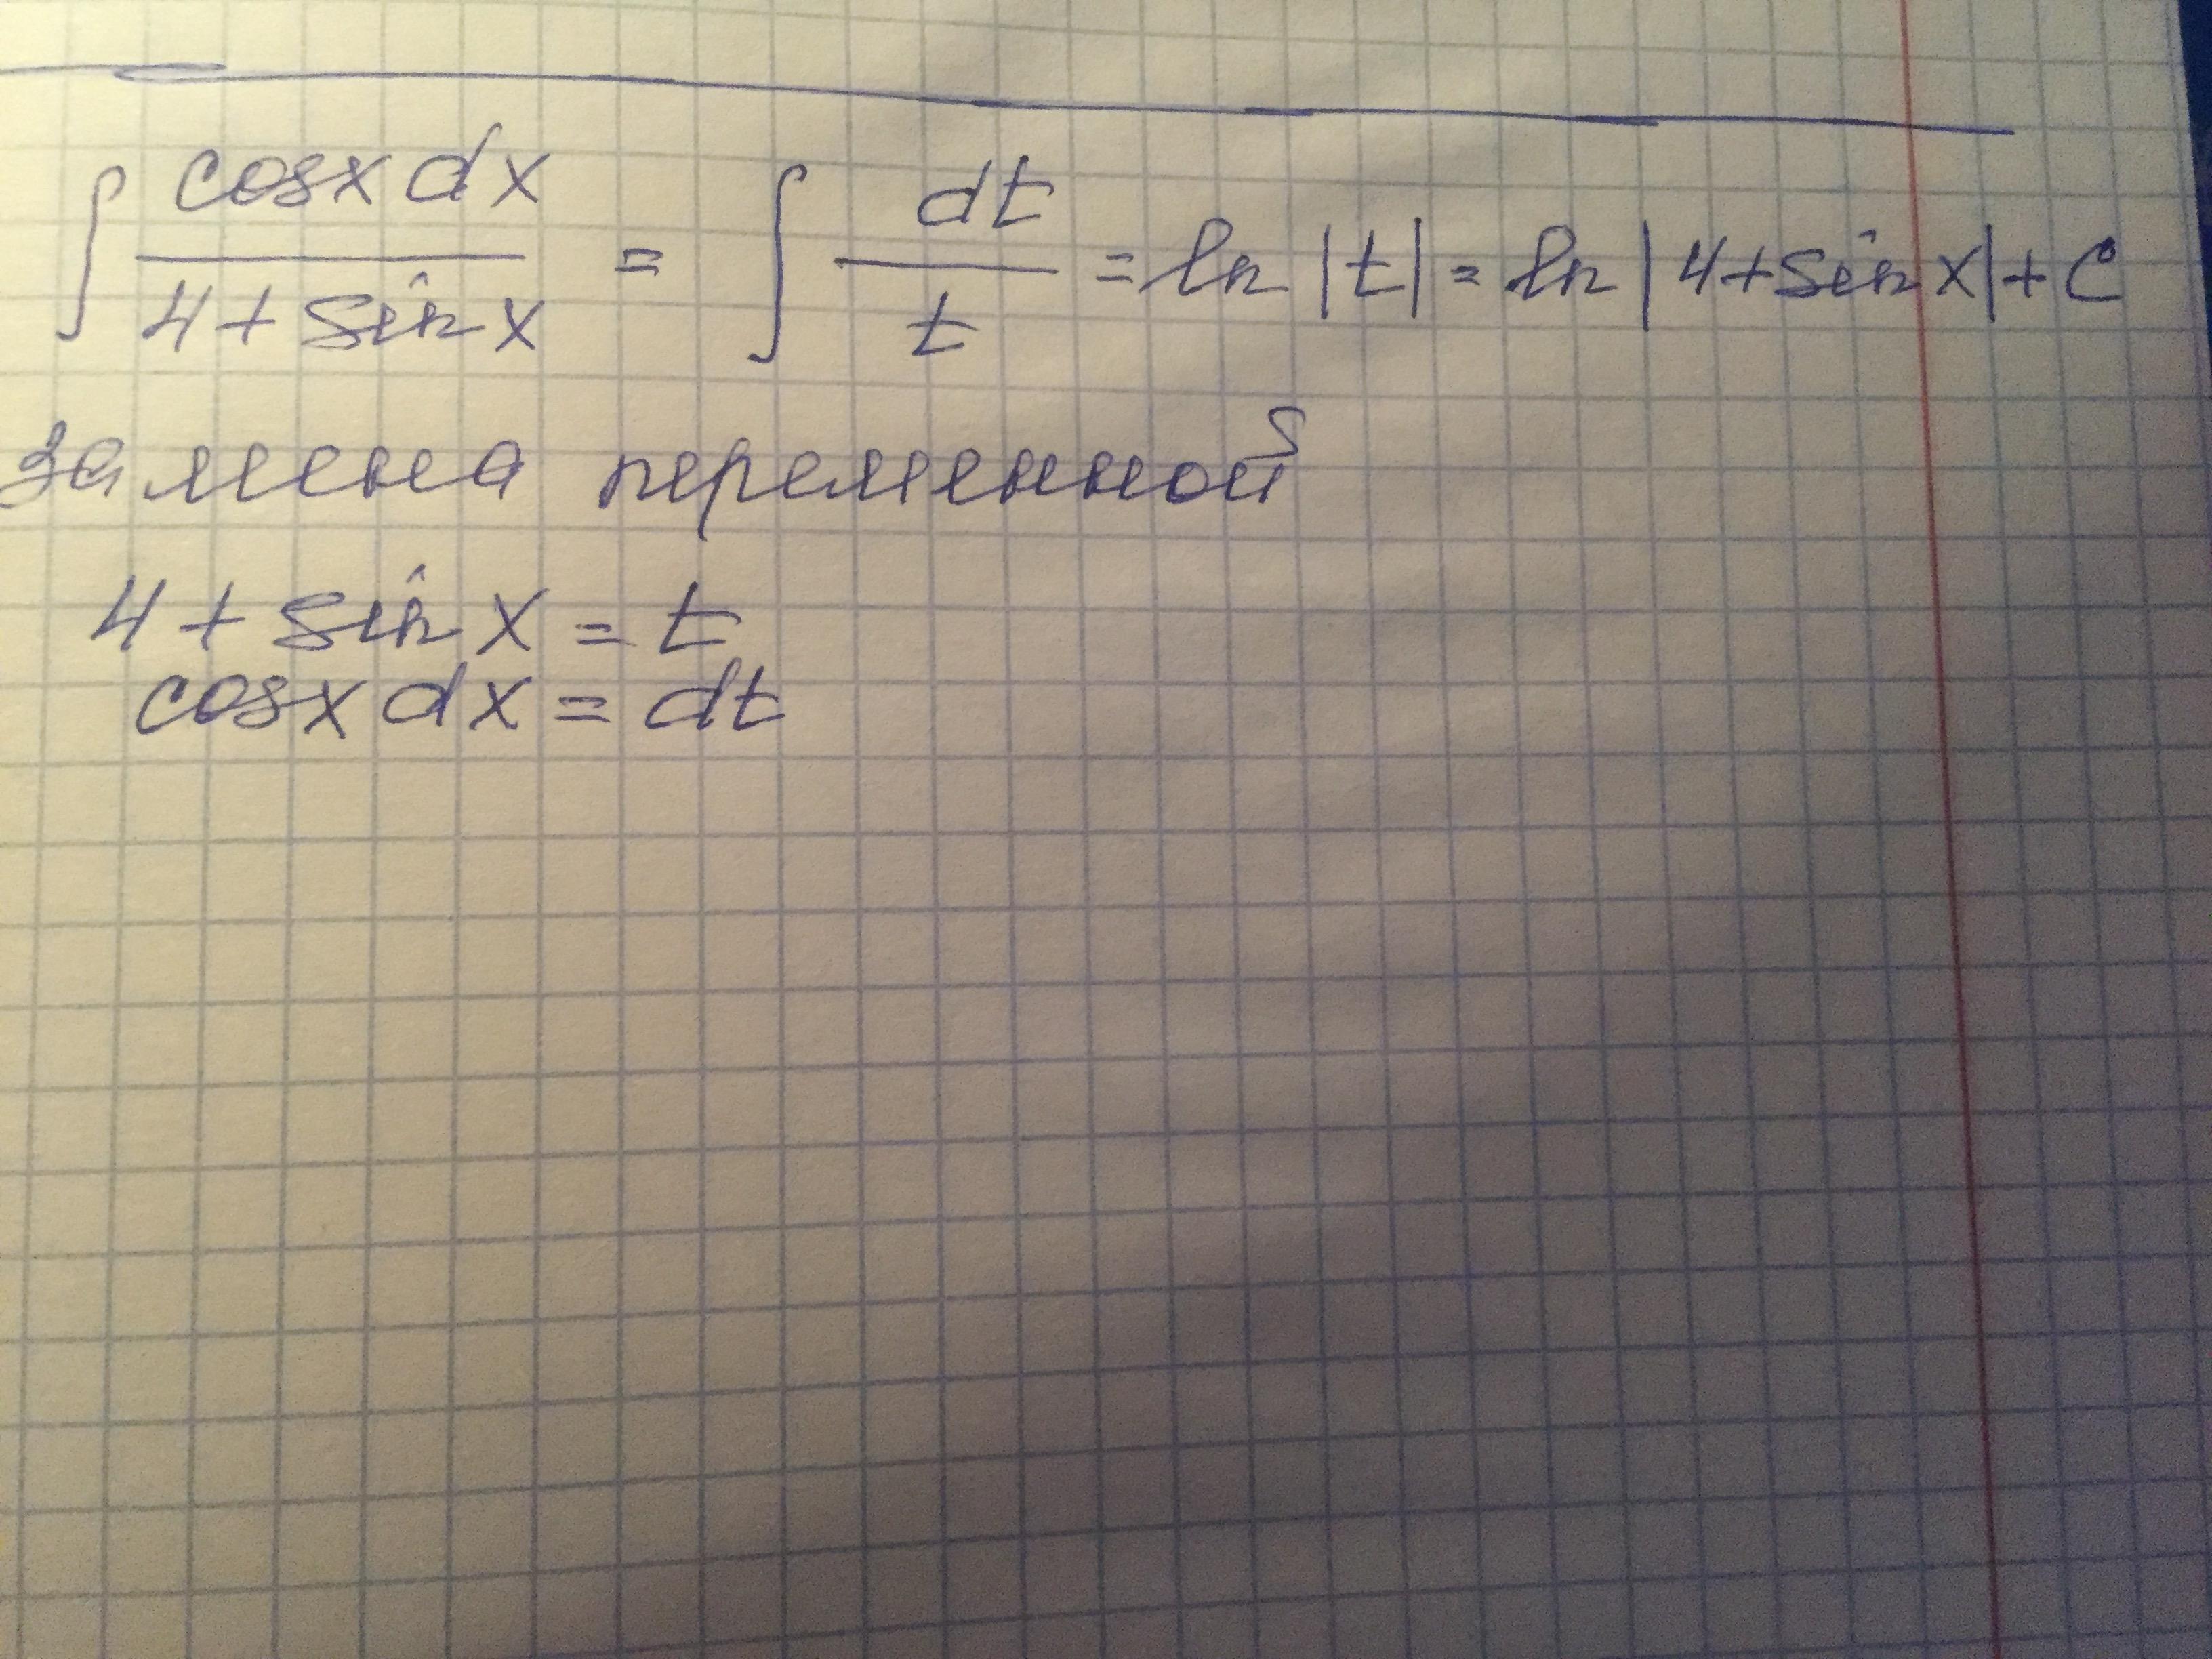 ∫ cosx dx / 4 + sin x = ∫ dt / t = ln |t| = ln |4+sin x| + C
замена переменной
4 + sin x = t
cosx dx = dt